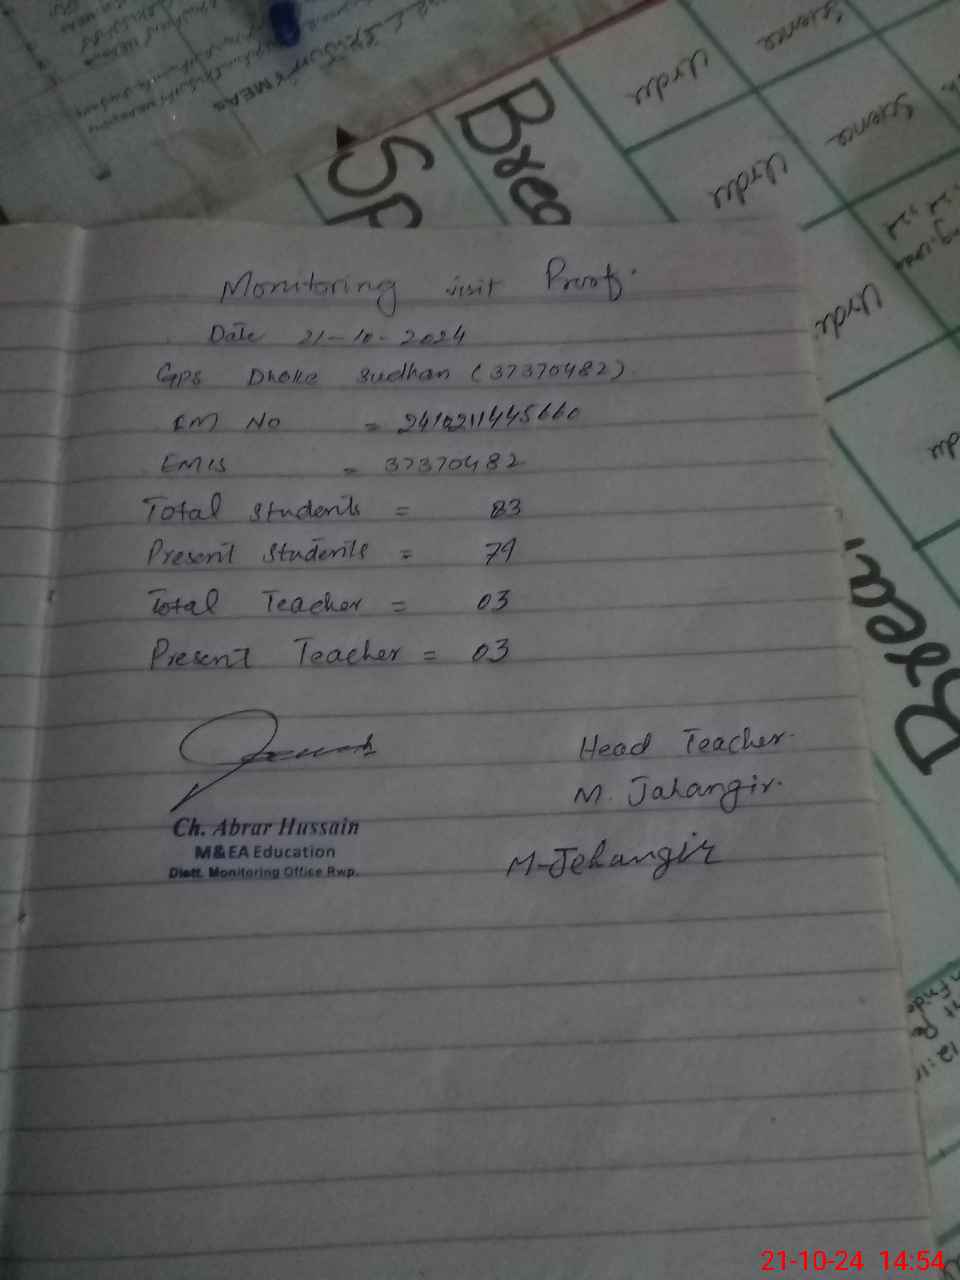 Urdu
Science
Brea
Sp
Urdu
Science
Urdu
Monitoring visit Proof.
Date 21-10-2024
GPS Dhoke Sudhan (37370482)
EM NO = 2410211445660
EMIS = 37370482
Total Students = 83
Present Students = 79
Total Teacher = 03
Present Teacher = 03
Head Teacher.
M. Jahangir.
Ch. Abrar Hussain
M&EA Education
Distt. Monitoring Office Rwp.
M-Jehangir
Brea
21-10-24 14:54